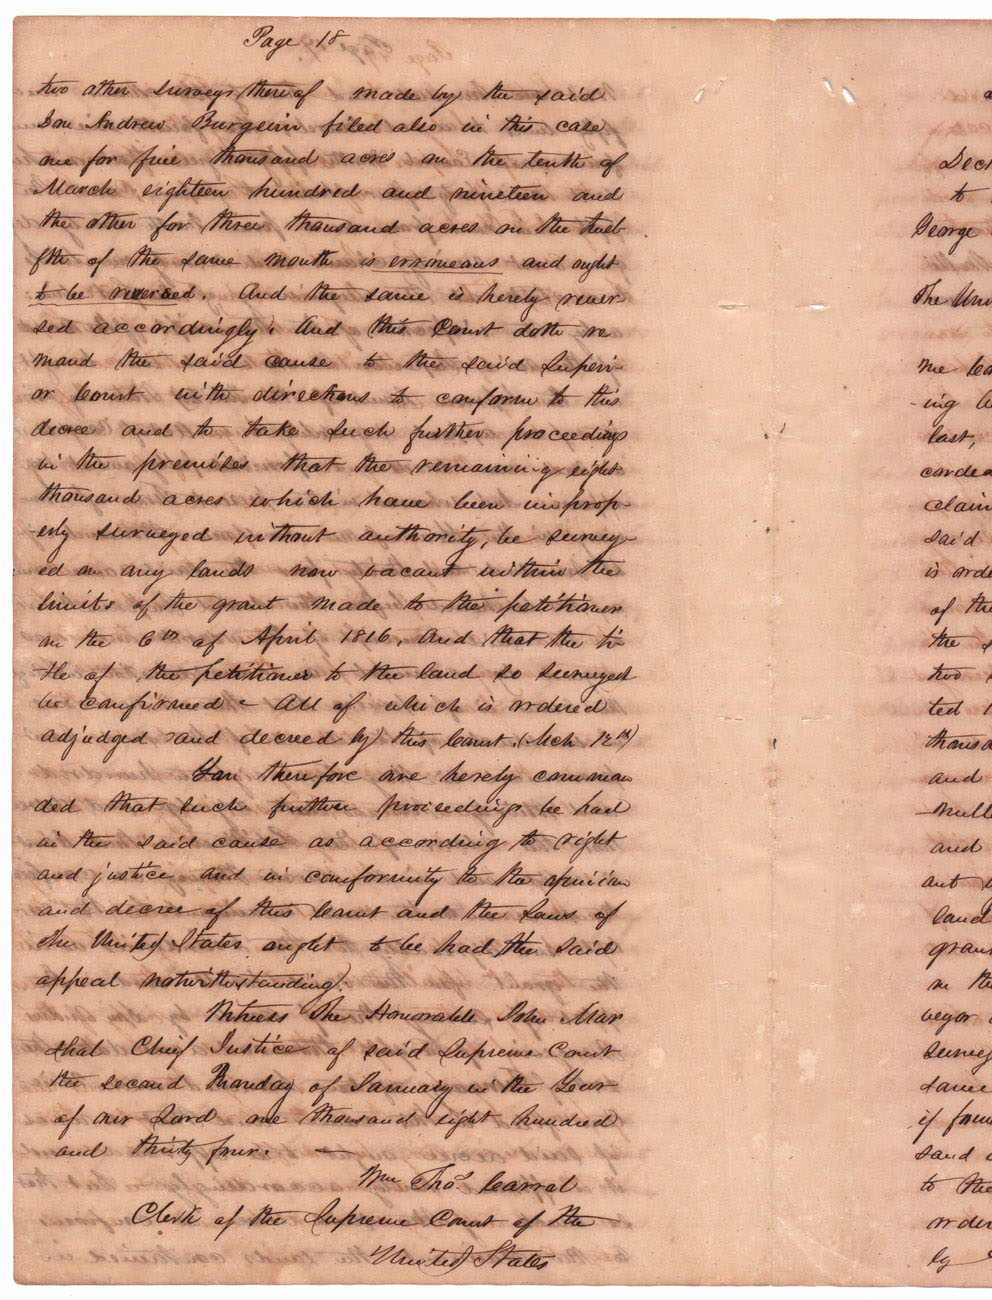 Page 18
two other surveys thereof made by the said
Don Andrew Burgevin filed also in this case
one for five thousand acres on the tenth of
March eighteen hundred and nineteen and
the other for three thousand acres on the twel
fth of the same month is erroneous and ought
to be reversed. And the same is hereby rever
sed accordingly: And this Court doth re
mand the said cause to the said Superi-
or Court with directions to conform to this
decree and to take such further proceedings
in the premises that the remaining eight
thousand acres which have been improp-
-erly surveyed without authority, be survey-
ed on any lands now vacant within the
limits of the grant made to the petitioner
on the 6th of April 1816. And that the ti-
-tle of the petitioner to the land so surveyed
be confirmed - All of which is ordered
adjudged and decreed by this Court. (Mch 12th)
You therefore are hereby comman
ded that such further proceedings be had
in the said cause as according to right
and justice and in conformity to the opinion
and decree of this Court and the Laws of
the United States ought to be had, the said
appeal notwithstanding.
Witness The Honorable John Mar
shal Chief Justice of said Supreme Court
the second Monday of January in the Year
of our Lord one thousand eight hundred
and thirty four. -
Wm Thos. Carral
Clerk of the Supreme Court of the
United States
to
George
The Uni
me
-ing
last,
claim
said
is orde
of the
the
two
ted
thousa
and
and
land
gran
on the
veyor
survey
same
if foun
sand
to the
order
by